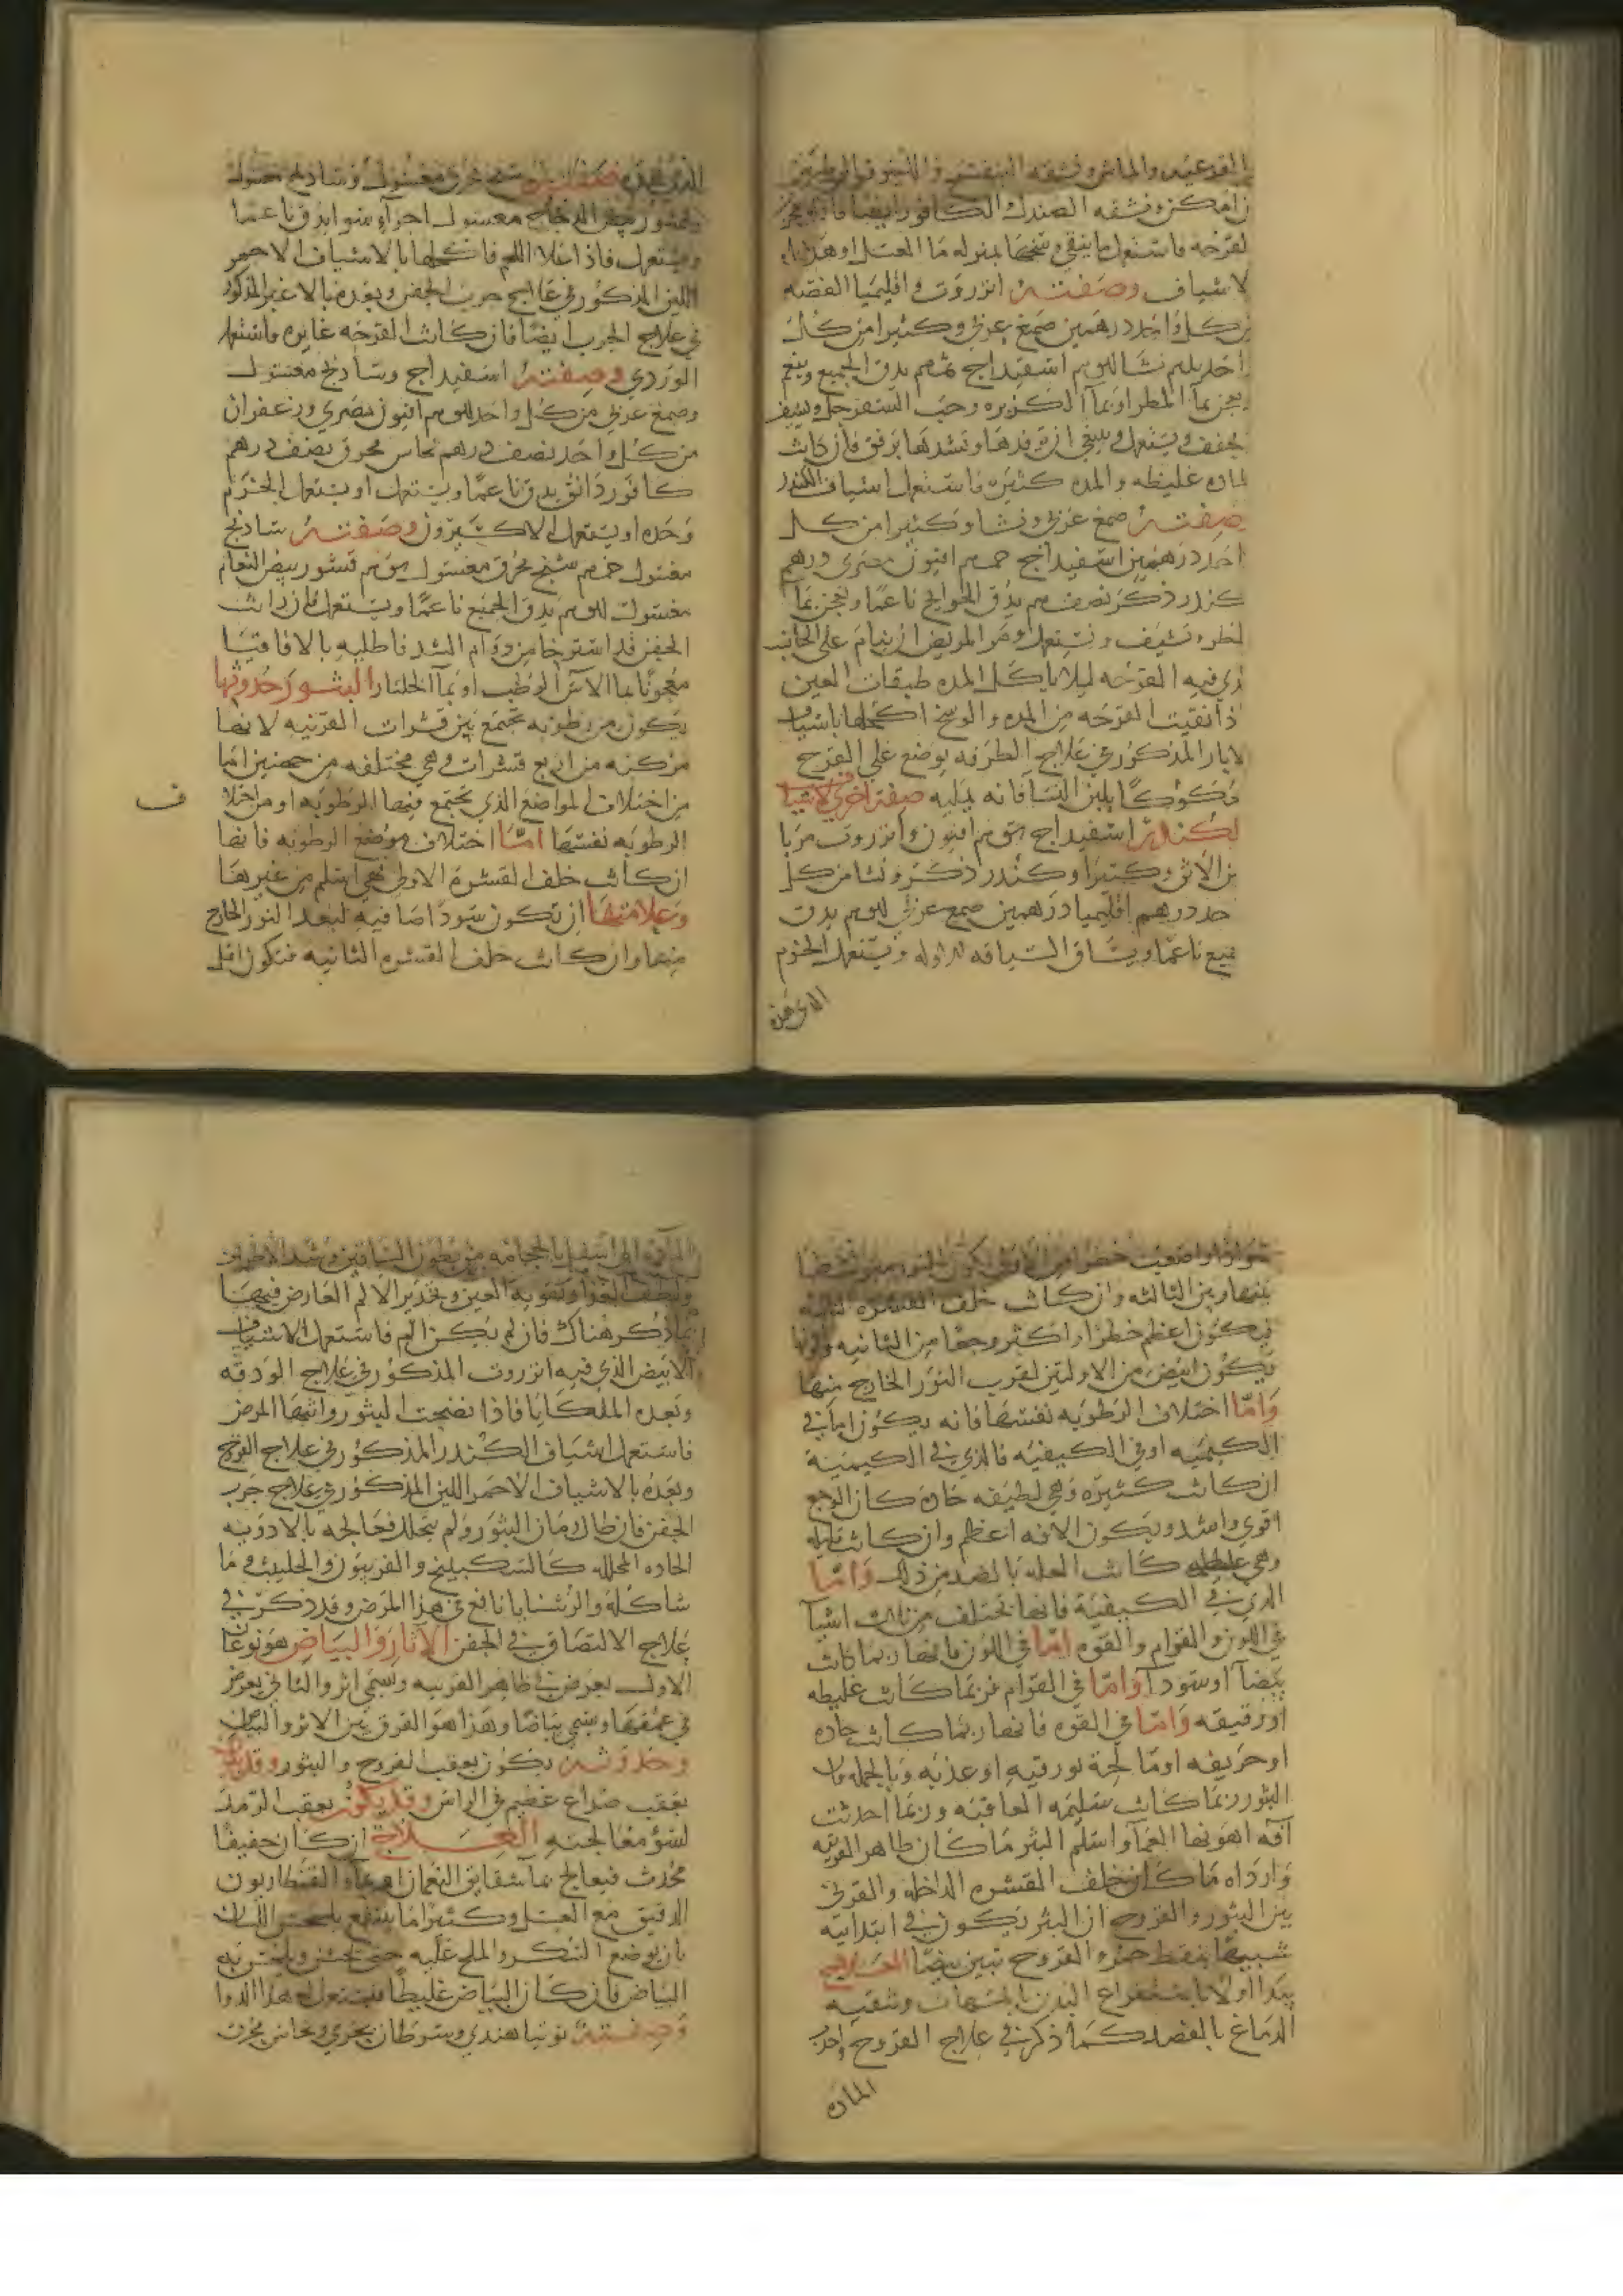 لقرحه فاستعمل ما ينقي وسخها بمنزله ما العسل او هذا
لاشياف وصفته انزروت واقليميا الفضه
من كل واحد درهمين صمغ عربي وكثيرا من كل
احد نشا اسفيداج يدق الجميع وينعم
يعجن بما المطر او بما الكزبره وحب السفرجل ويشيف
يجفف ويستعمل وينبغي ان ترفدها وتشدها برفق فان كانت
لماده غليظه والمده كثيره فاستعمل اشياف الكندر
صفته صمغ عربي ونشا وكثيرا من كل
احد درهمين اسفيداج افيون مصري درهم
كندر ذكر نصف يدق الحوايج ناعما ويعجن بما
لمطر ويشيف ويستعمل ومر المريض ان ينام علي الجانب
ذي فيه القرحه ليلا ياكل المده طبقات العين
ذا نقيت القرحه من المده والوسخ اكحلها باشياف
لابار المذكور في علاج الطرفه يوضع علي القرح
محكوكا بلبن النسا فانه يمليه صفته اخري لاشياف
لكندر اسفيداج افيون وانزروت مربا
بن الاتن وكثيرا وكندر ذكر ونشا من كل
حد درهم اقليميا درهمين صمغ عربي يدق
ميع ناعما ويشاف الشيافه ويستعمل الحزم
الذي هذه
الذي هذه صفته شنج محرق مغسول وشادنج مغسول
وقشور بيض الدجاج مغسول اجزاء سوا يدق ناعما
ويستعمل فاذا علا اللحم فاكحلها بالاشياف الاحمر
اللين المذكور في علاج جرب الجفن وبعده بالاغبر المذكور
في علاج الجرب ايضا فان كانت القرحه غايره فاستعمل
الوردي وصفته اسفيداج وشادنج مغسول
وصمغ عربي من كل واحد افيون مصري وزعفران
من كل واحد نصف درهم نحاس محرق نصف درهم
كافور دانق يدق ناعما ويستعمل او يستعمل الحزم
وحده او يستعمل الاكسيرين وصفته شادنج
مغسول شنج محرق مغسول قشور بيض النعام
مغسول يدق الجميع ناعما ويستعمل فان رايت
الجفن قد استرخا من دوام الشد فاطليه بالاقاقيا
معجونا بما الاس الرطب او بما الجلنار البثور حدوثها
يكون من رطوبه تجتمع بين قشرات القرنيه لانها
مركبه من اربع قشرات وهي مختلفه من جهتين اما
من اختلاف المواضع الذي تجتمع فيها الرطوبه او من اختلا
ف
الرطوبه نفسها اما اختلاف موضع الرطوبه فانها
ان كانت خلف القشره الاولي فهي اسلم من غيرها
وعلامتها ان تكون سودا صافيه لبعد النور الخارج
منها وان كانت خلف القشره الثانيه فتكون اقل
سوادا واضعف خطرا من الاولي لكون النور متوسطا
بينها وبين الثالثه وان كانت خلف القشره الثالثه
فيكون اعظم خطرا واكثر وجعا من الثانيه ولونها
يكون ابيض من الاولتين لقرب النور الخارج منها
واما اختلاف الرطوبه نفسها فانه يكون اما في
الكيميه او في الكيفيه فالذي في الكيميه
ان كانت كثيره وهي لطيفه حاده كان الوجع
اقوي واشد ويكون الافه اعظم وان كانت قليله
وهي غليظه كانت العله بالضد من ذلك واما
الذي في الكيفيه فانها تختلف من ثلاث اشيا
في اللون والقوام والقوه اما في اللون فانها ربما كانت
بيضا او سودا واما في القوام فربما كانت غليظه
او رقيقه واما في القوه فانها ربما كانت حاده
او حريفه او مالحة بورقيه او عذبه وبالجمله فان
البثور ربما كانت سليمه العاقبه وربما احدثت
افه اهونها العما واسلم البثر ما كان ظاهر القرنيه
وارداه ما كان خلف القشره الداخله والفرق
بين البثور والقروح ان البثر يكون في ابتدايه
شبيها بنقط حمر والقروح تبين بيضا العلاج
يبدا اولا باستفراغ البدن بالمسهلات وتنقيه
الدماغ بالفصد كما ذكر في علاج القروح واجذب
الماده
الماده الي اسفل بالحجامه من بطون الساقين وشد الاطراف
وتلطف الغذا وتقويه العين وتخدير الالم العارض فيها
بما ذكر هناك فان لم يكن الم فاستعمل الاشياف
الابيض الذي فيه انزروت المذكور في علاج الودقه
وبعده الملكايا فاذا نضجت البثور وانتها المرض
فاستعمل اشياف الكندر المذكور في علاج القروح
وبعده بالاشياف الاحمر اللين المذكور في علاج جرب
الجفن فان طال زمان البثور ولم تتحلل فعالجه بالادويه
الحاده المحلله كالسكبينج والفربيون والحلتيث وما
شاكله والرشنايا نافع في هذا المرض وقد ذكر في
علاج الالتصاق في الجفن الاثار والبياض هو نوعان
الاول يعرض في ظاهر القرنيه ويسمي اثر والثاني يعرض
في عمقها ويسمي بياضا وهذا هو الفرق بين الاثر والبياض
وحدوثه يكون بعقب القروح والبثور وقد يكون
بعقب صداع عظيم في الراس وقد يكون بعقب الرمد
لسؤ معالجته العلاج ان كان خفيفا
محدث فيعالج بما شقايق النعمان او بما القنطاريون
الدقيق مع العسل وكثيرا ما ينتفع بلحس اللسان
بان يوضع السكر والملح عليه حتي يخشن ويلحس به
البياض فان كان البياض غليظا فليستعمل هذا الدوا
وصفته توتيا هندي وسرطان بحري ونحاس محرق